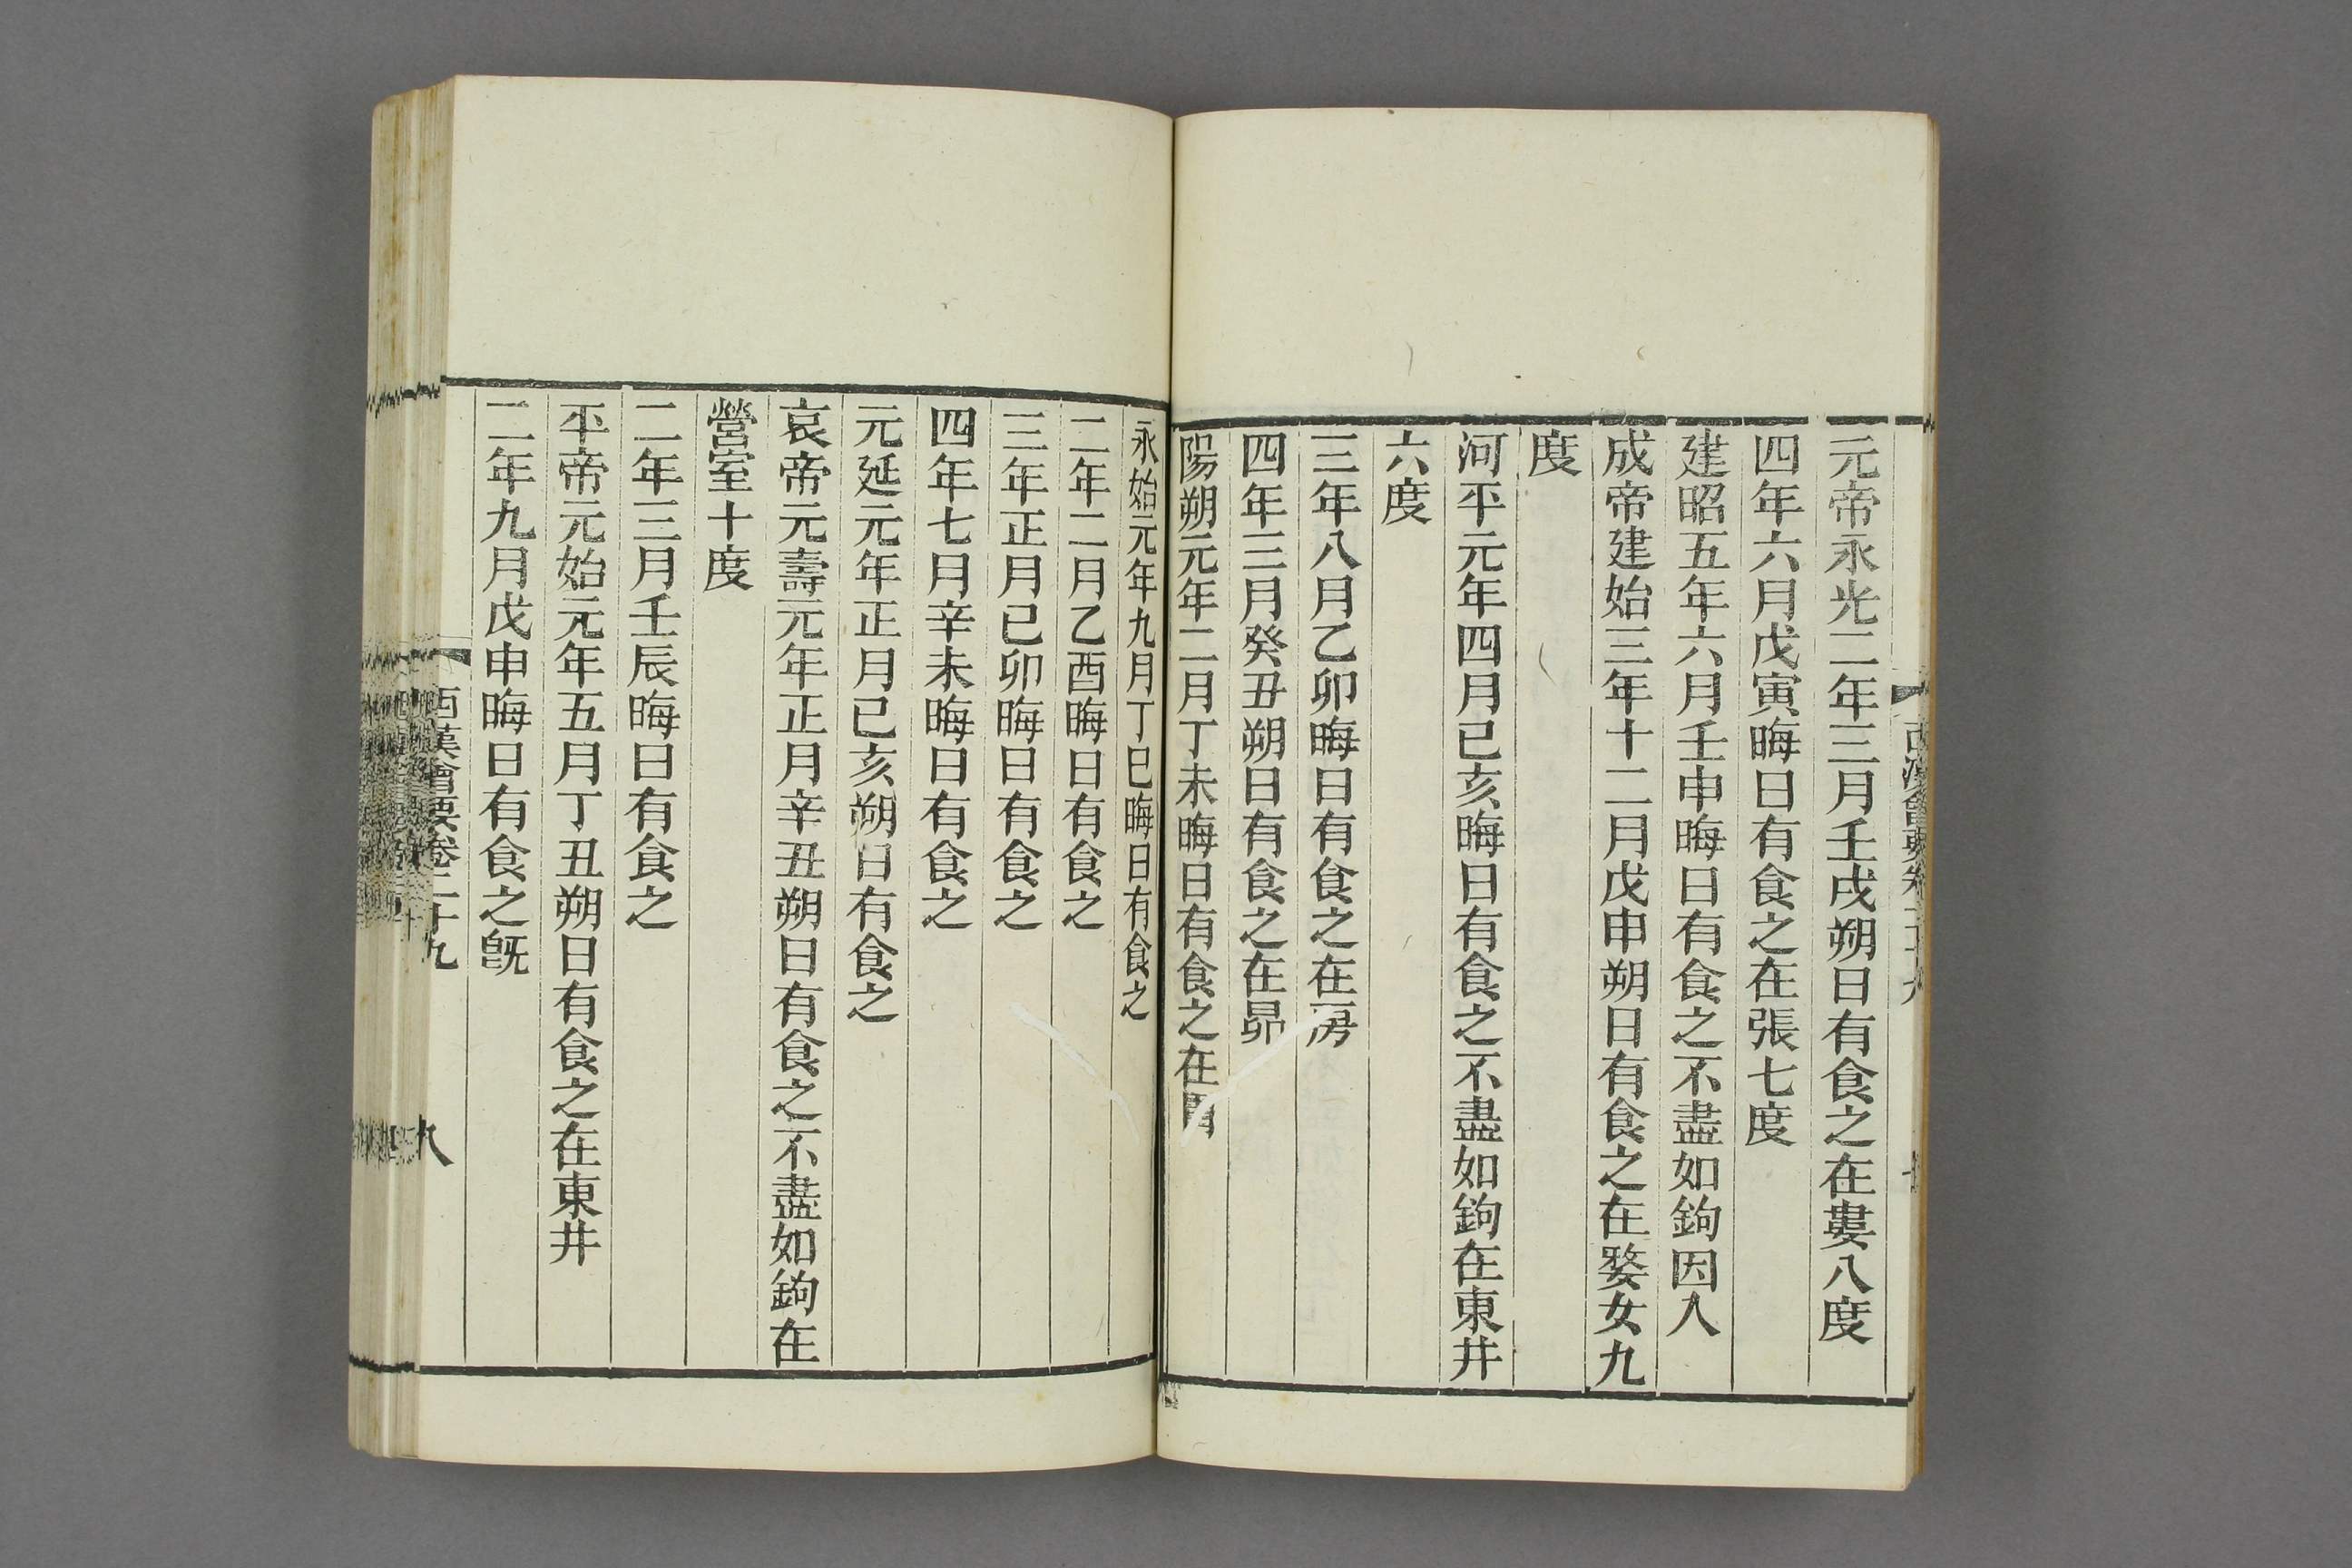 元帝永光二年三月壬戌朔日有食之在婁八度
四年六月戊寅晦日有食之在張七度
建昭五年六月壬申晦日有食之不盡如鉤因入
成帝建始三年十二月戊申朔日有食之在婺女九
度
河平元年四月己亥晦日有食之不盡如鉤在東井
六度
三年八月乙卯晦日有食之在房
四年三月癸丑朔日有食之在昴
陽朔元年二月丁未晦日有食之在胃
永始元年九月丁巳晦日有食之
二年二月乙酉晦日有食之
三年正月己卯晦日有食之
四年七月辛未晦日有食之
元延元年正月己亥朔日有食之
哀帝元壽元年正月辛丑朔日有食之不盡如鉤在
營室十度
二年三月壬辰晦日有食之
平帝元始元年五月丁丑朔日有食之在東井
二年九月戊申晦日有食之旣
西漢會要卷二十九
九